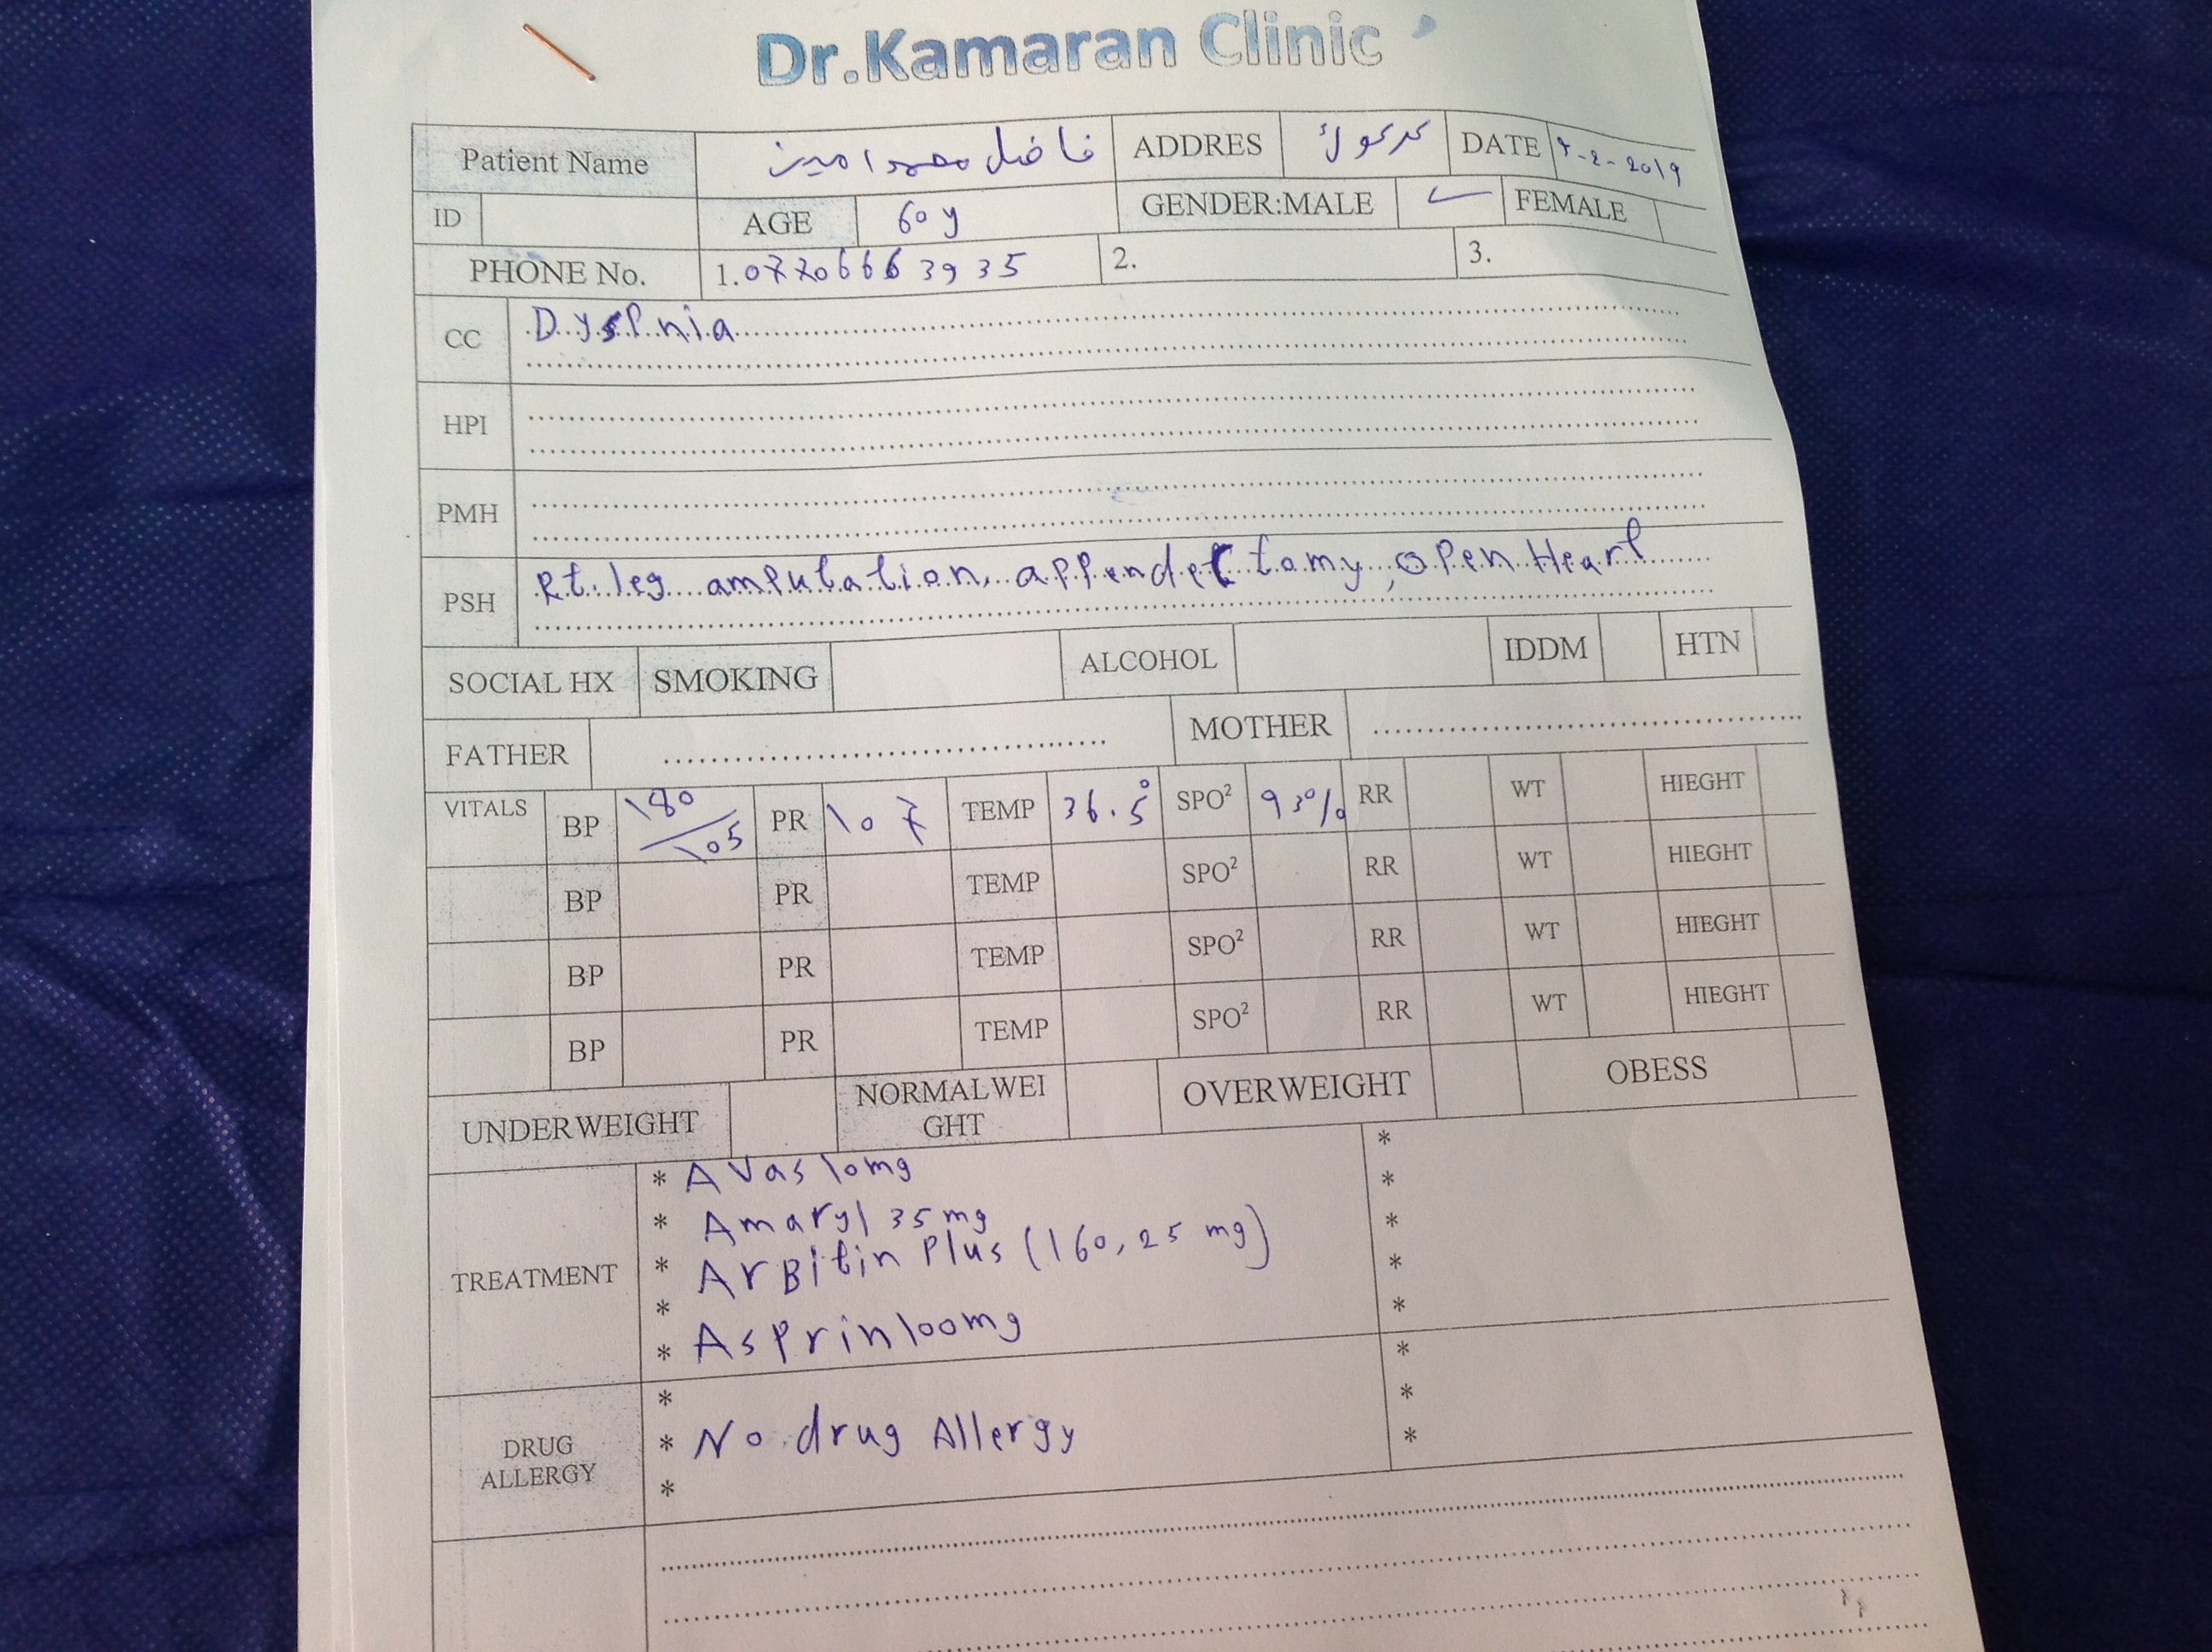 Dr.Kamaran Clinic
Patient Name فاضل محمد امين ADDRES كركوك DATE 4-2-2019
ID AGE 60 y GENDER:MALE ✓ FEMALE
PHONE No. 1.07706663935 2. 3.
CC Dyspnia
HPI
PMH
PSH Rt. leg amputation, appendectomy, open Heart
SOCIAL HX SMOKING ALCOHOL IDDM HTN
FATHER MOTHER
VITALS BP 180/105 PR 107 TEMP 36.5° SPO² 93% RR WT HIEGHT
BP PR TEMP SPO² RR WT HIEGHT
BP PR TEMP SPO² RR WT HIEGHT
BP PR TEMP SPO² RR WT HIEGHT
UNDERWEIGHT NORMALWEI
GHT OVERWEIGHT OBESS
TREATMENT
* Avas 10mg *
* Amaryl 35mg *
* ArBitin Plus (160,25 mg) *
* *
* Asprin 100mg *
DRUG
ALLERGY
* *
* No drug Allergy *
* *